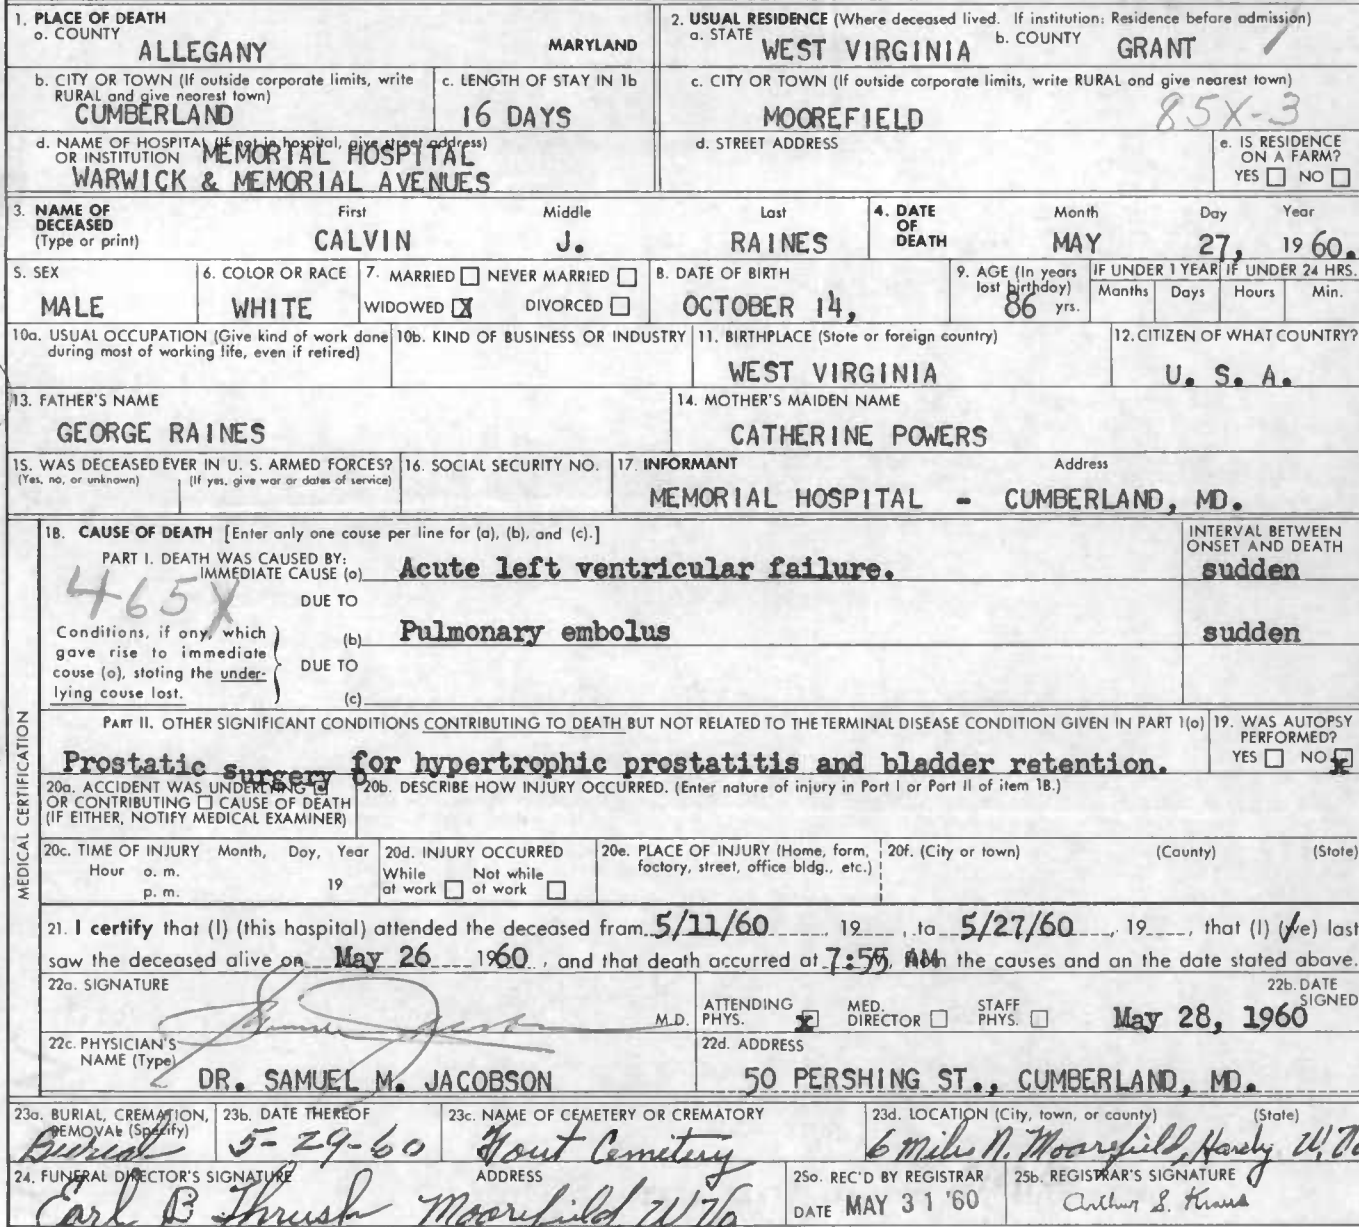 1. PLACE OF DEATH
a. COUNTY
ALLEGANY MARYLAND
2. USUAL RESIDENCE (Where deceased lived. If institution: Residence before admission)
a. STATE WEST VIRGINIA b. COUNTY GRANT
b. CITY OR TOWN (If outside corporate limits, write
RURAL and give nearest town)
CUMBERLAND
c. LENGTH OF STAY IN 1b
16 DAYS
c. CITY OR TOWN (If outside corporate limits, write RURAL and give nearest town)
MOOREFIELD
85X-3
d. NAME OF HOSPITAL (If not in hospital, give street address)
OR INSTITUTION MEMORIAL HOSPITAL
WARWICK & MEMORIAL AVENUES
d. STREET ADDRESS
e. IS RESIDENCE
ON A FARM?
YES NO
3. NAME OF
DECEASED
(Type or print)
First Middle Last
CALVIN J. RAINES
4. DATE
OF
DEATH
Month Day Year
MAY 27, 1960.
5. SEX
MALE
6. COLOR OR RACE
WHITE
7. MARRIED NEVER MARRIED
WIDOWED X DIVORCED
8. DATE OF BIRTH
OCTOBER 14,
9. AGE (In years
last birthday)
86 yrs.
IF UNDER 1 YEAR
Months Days
IF UNDER 24 HRS.
Hours Min.
10a. USUAL OCCUPATION (Give kind of work done
during most of working life, even if retired)
10b. KIND OF BUSINESS OR INDUSTRY
11. BIRTHPLACE (State or foreign country)
WEST VIRGINIA
12. CITIZEN OF WHAT COUNTRY?
U. S. A.
13. FATHER'S NAME
GEORGE RAINES
14. MOTHER'S MAIDEN NAME
CATHERINE POWERS
15. WAS DECEASED EVER IN U. S. ARMED FORCES?
(Yes, no, or unknown) (If yes, give war or dates of service)
16. SOCIAL SECURITY NO.
17. INFORMANT Address
MEMORIAL HOSPITAL - CUMBERLAND, MD.
MEDICAL CERTIFICATION
18. CAUSE OF DEATH [Enter only one cause per line for (a), (b), and (c).]
INTERVAL BETWEEN
ONSET AND DEATH
PART I. DEATH WAS CAUSED BY:
IMMEDIATE CAUSE (a) Acute left ventricular failure. sudden
465X
DUE TO
(b) Pulmonary embolus sudden
Conditions, if any, which
gave rise to immediate
cause (a), stating the under-
lying cause last.
DUE TO
(c)
PART II. OTHER SIGNIFICANT CONDITIONS CONTRIBUTING TO DEATH BUT NOT RELATED TO THE TERMINAL DISEASE CONDITION GIVEN IN PART 1(a)
Prostatic surgery for hypertrophic prostatitis and bladder retention.
19. WAS AUTOPSY
PERFORMED?
YES NO x
20a. ACCIDENT WAS UNDERLYING
OR CONTRIBUTING CAUSE OF DEATH
(IF EITHER, NOTIFY MEDICAL EXAMINER)
20b. DESCRIBE HOW INJURY OCCURRED. (Enter nature of injury in Part I or Part II of item 18.)
20c. TIME OF INJURY Month, Day, Year
Hour a. m.
p. m. 19
20d. INJURY OCCURRED
While at work Not while at work
20e. PLACE OF INJURY (Home, farm,
factory, street, office bldg., etc.)
20f. (City or town) (County) (State)
21. I certify that (I) (this hospital) attended the deceased from 5/11/60 19 , to 5/27/60 , 19 , that (I) (we) last
saw the deceased alive on May 26 1960, and that death occurred at 7:55 AM from the causes and on the date stated above.
22a. SIGNATURE
M.D.
ATTENDING PHYS. x
MED. DIRECTOR
STAFF PHYS.
22b. DATE
SIGNED
May 28, 1960
22c. PHYSICIAN'S
NAME (Type)
DR. SAMUEL M. JACOBSON
22d. ADDRESS
50 PERSHING ST., CUMBERLAND, MD.
23a. BURIAL, CREMATION,
REMOVAL (Specify)
Burial
23b. DATE THEREOF
5-29-60
23c. NAME OF CEMETERY OR CREMATORY
Fout Cemetery
23d. LOCATION (City, town, or county) (State)
6 Miles N. Moorefield, Hardy, W. Va
24. FUNERAL DIRECTOR'S SIGNATURE ADDRESS
Earl B Thrush Moorefield W Va
25a. REC'D BY REGISTRAR
DATE MAY 31 '60
25b. REGISTRAR'S SIGNATURE
Arthur S. Kraus